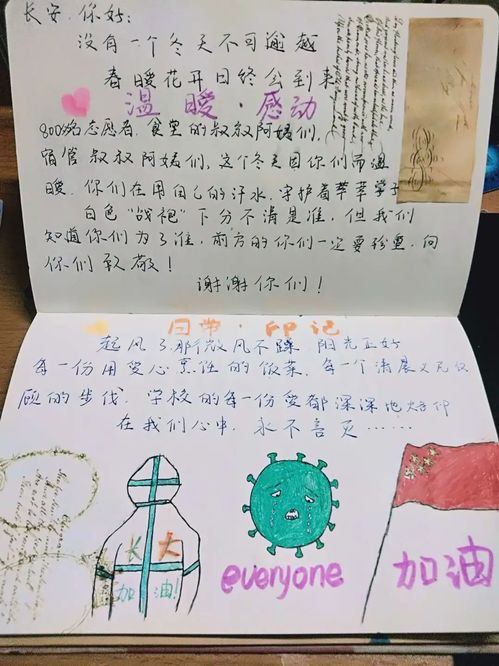 长安，你好：
没有一个冬天不可逾越
春暖花开日终会到来
温暖·感动
800名志愿者，食堂的叔叔阿姨们，
宿管叔叔阿姨们，这个冬天因你们而温
暖。你们在用自己的汗水，守护着莘莘学子
白色“战袍”下分不清是谁，但我们
知道你们为了谁，前方的你们一定要珍重，向
你们致敬！
谢谢你们！
日常·印记
起风了，那个微风不燥，阳光正好
每一份用爱心烹饪的饭菜，每一个清晨义无反
顾的步伐，学校的每一份爱都深深地烙印
在我们心中，永不言灭……
长大
加油！
everyone
加油